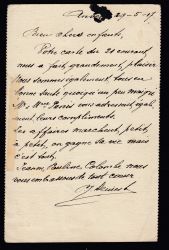 29-5-17
Bien chers enfants,
Votre carte du 21 courant
nous a fait, grandement, plaisir
Nous sommes également tous en
bonne santé quoiqu'un peu
Mr, Mme vous adressent égale-
ment leurs compliments.
Les affaires marchent, petit,
à petit, on gagne sa vie mais
c'est tout,
Jeanne, Pauline, Colombe nous
vous embrassons de tout coeur